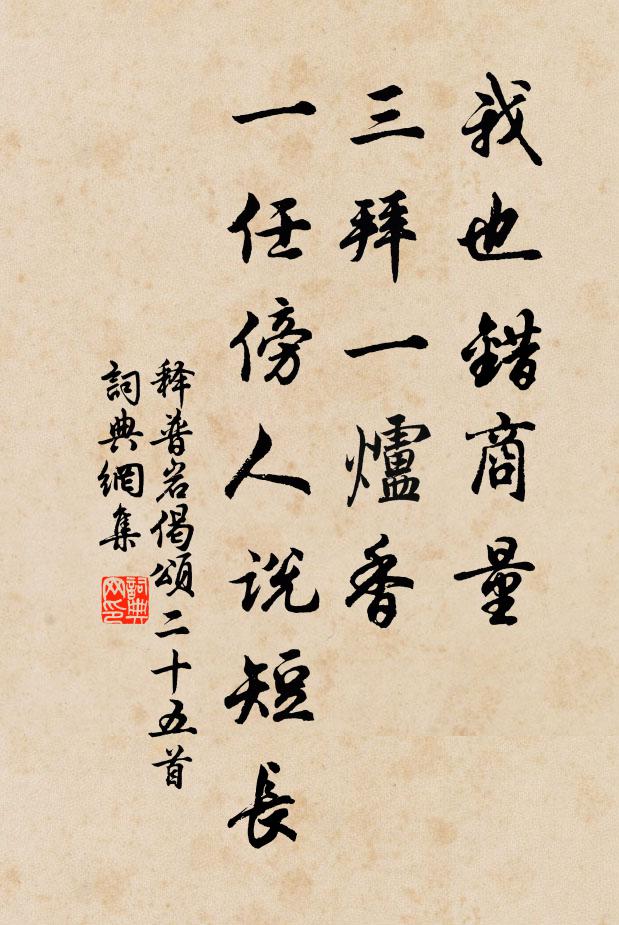 我也錯商量
三拜一爐香
一任傍人说短長
释普岩偈頌二十五首
詞典網集
詞典网印